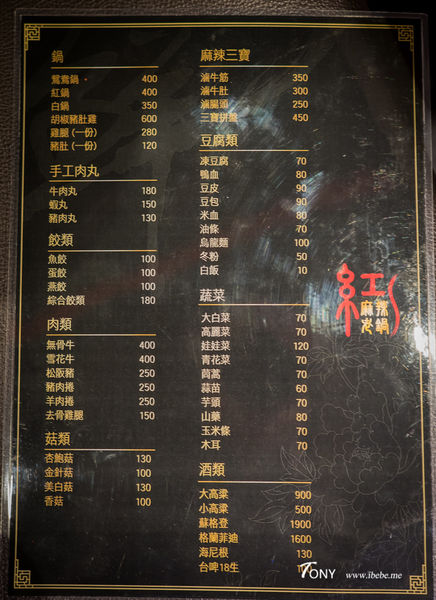 鍋
鴛鴦鍋 400
紅鍋 400
白鍋 350
胡椒豬肚雞 600
雞腿(一份) 280
豬肚(一份) 120
手工肉丸
牛肉丸 180
蝦丸 150
豬肉丸 130
餃類
魚餃 100
蛋餃 100
燕餃 100
綜合餃類 180
肉類
無骨牛 400
雪花牛 400
松阪豬 250
豬肉捲 250
羊肉捲 250
去骨雞腿 150
菇類
杏鮑菇 130
金針菇 100
美白菇 130
香菇 100
麻辣三寶
滷牛筋 350
滷牛肚 300
滷腸頭 250
三寶拼盤 450
豆腐類
凍豆腐 70
鴨血 80
豆皮 90
豆包 90
米血 80
油條 70
烏龍麵 100
冬粉 50
白飯 10
蔬菜
大白菜 70
高麗菜 70
娃娃菜 120
青花菜 70
茼蒿 70
蒜苗 60
芋頭 70
山藥 80
玉米條 70
木耳 70
酒類
大高粱 900
小高粱 500
蘇格登 1900
格蘭菲迪 1600
海尼根 130
台啤18生
紅
麻辣
火鍋
TONY www.ibebe.me